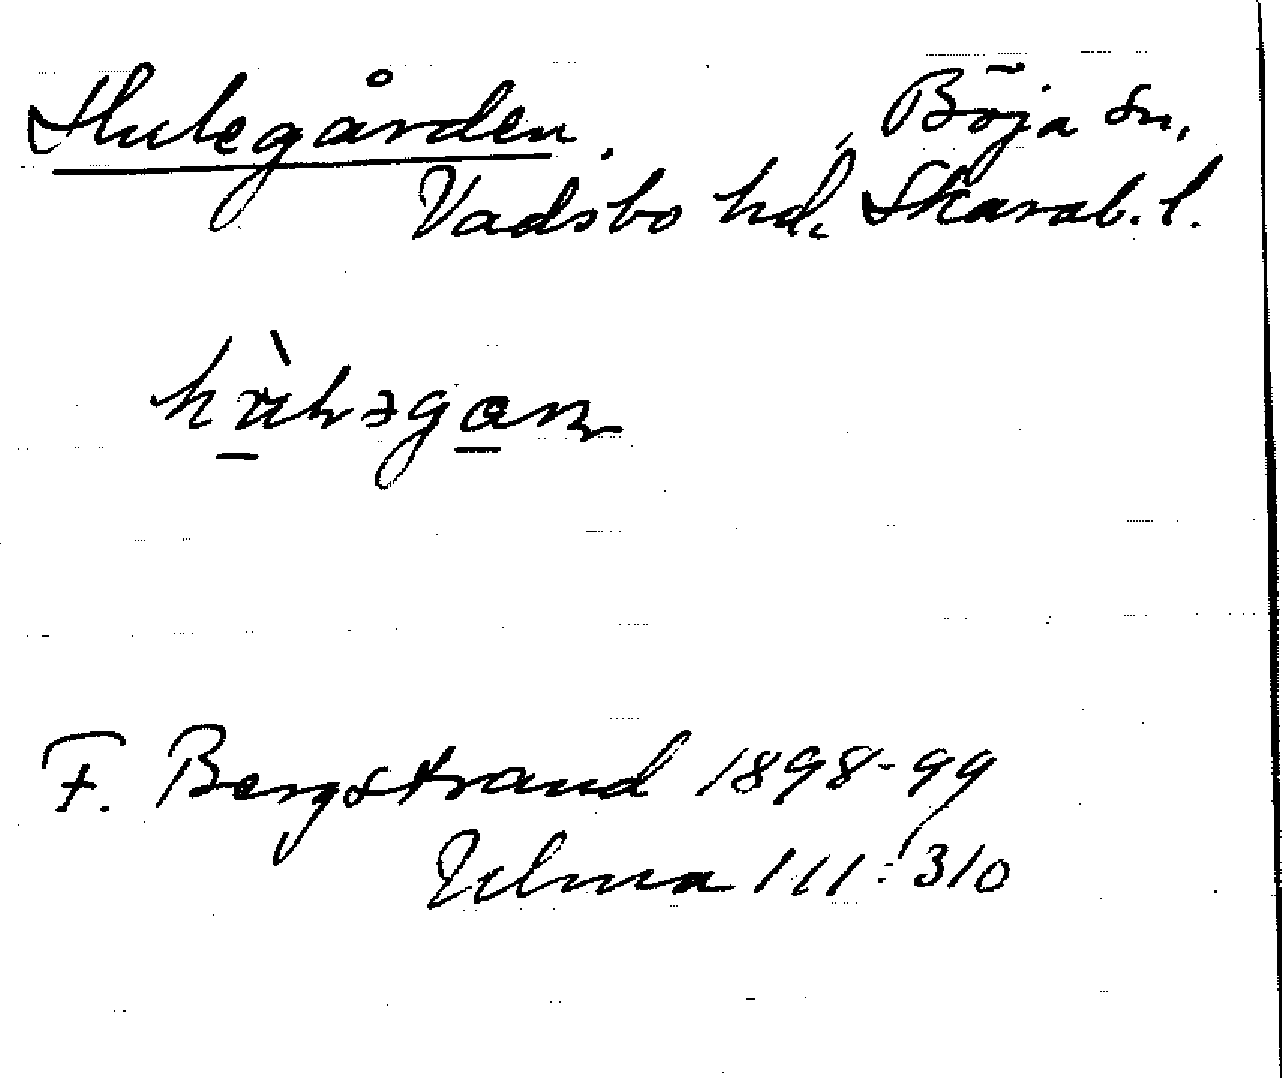 Hulegården.
Böja sn,
Vadsbo hd, Skarab. l.
F. Bergstrand 1898-99
Ulma 111:310